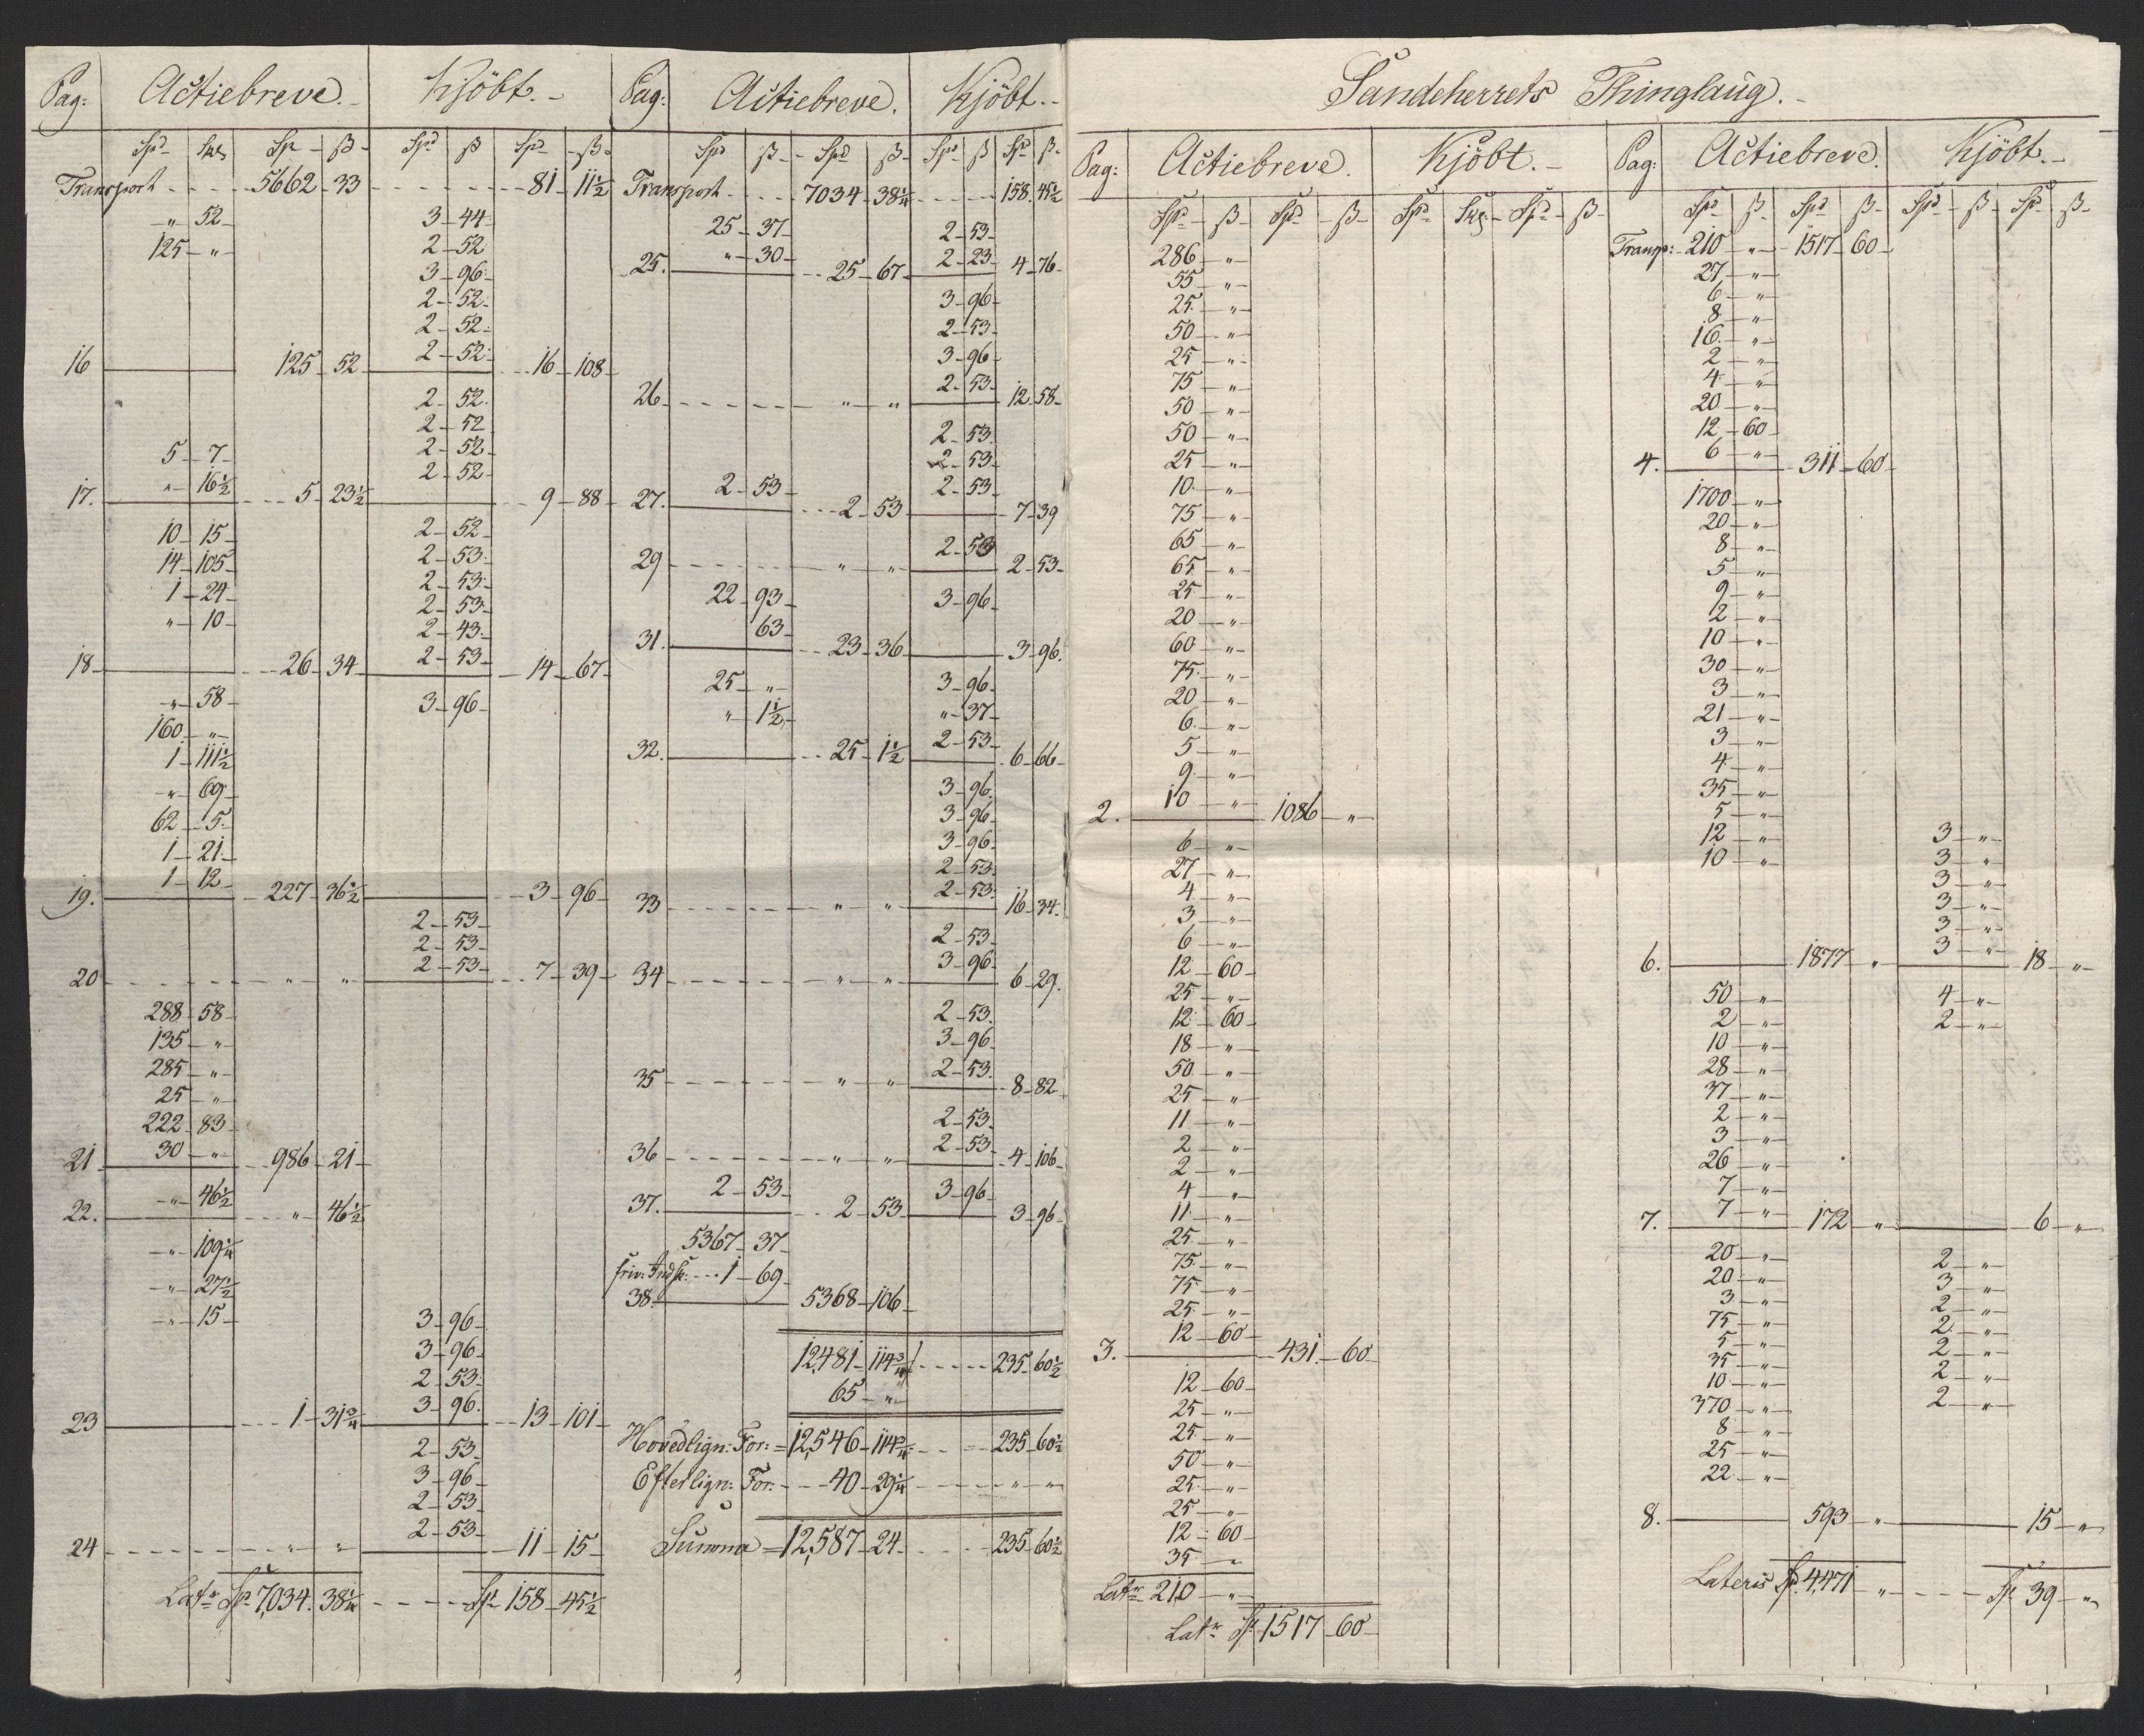 Pag: Actiebreve. Kjöbt.
Spd Skl Sp ß Spd ß Spd ß
Transport 5662 33 81 11½
„ 52 3 44
125 „ 2 52
3 96
2 52
2 52
16 125 52 2 52 16 108
2 52
2 52
5 7 2 52
„ 16½ 2 52
17. 5 23½ 9 88
10 15 2 52
14 105 2 53
1 24 2 53
„ 10 2 53
2 43
18 26 34 2 53 14 67
„ 58 3 96
160 „
1 111½
„ 69
62 5
1 21
1 12
19. 227 36½ 3 96
2 53
2 53
20 „ „ 2 53 7 39
288 58
135 „
285 „
25 „
222 83
30 „
21 986 21
„ 46½
22. „ 46½
„ 109¼
„ 27½
„ 15 3 96
3 96
2 53
23 1 31¾ 3 96 13 101
2 53
3 96
2 53
24 „ „ 2 53 11 15
Latr Sp 7,034 38¼ Sp 158 45½
Pag: Actiebreve. Kjöbt.
Spd ß Spd ß Spd ß Spd ß
Transport 7034 38¼ 158 45½
25 37 2 53
„ 30 2 23
25. 25 67 4 76
3 96
2 53
3 96
26 „ „ 2 53 12 58
2 53
2 53
2 53 2 53
27. 2 53 7 39
29 „ „ 2 53 2 53
22 93 3 96
63
31. 23 36 3 96
25 „ 3 96
„ 1½ „ 37
32. 25 1½ 2 53 6 66
3 96
3 96
3 96
2 53
33 „ „ 2 53 16 34
2 53
34 „ „ 3 96 6 29
2 53
3 96
35 „ „ 2 53 8 82
2 53
36 „ „ 2 53 4 106
2 53 3 96
37. 2 53 3 96
5367 37
1 69
38. 5368 106
12,481 114¾ 235 60½
65 „
Hovedlign: For: = 12,546 114¾ 235 60½
Efterlign: For: 40 29¼ „ „
Summa = 12,587 24 235 60½
Sandeherrets Thinglaug.
Pag: Actiebreve. Kjöbt.
Spd ß Spd ß Spd Skl Spd ß
286 „
55 „
25 „
50 „
25 „
75 „
50 „
50 „
25 „
10 „
75 „
65 „
65 „
25 „
20 „
60 „
75 „
20 „
6 „
5 „
9 „
10 „
2. 1086 „
6 „
27 „
4 „
3 „
6 „
12 60
25 „
12 60
18 „
50 „
25 „
11 „
2 „
2 „
4 „
11 „
25 „
75 „
75 „
25 „
12 60
3. 431 60
12 60
25 „
25 „
50 „
25 „
25 „
12 60
35 „
Latr 210 „
Latr Sp 1517 60
Pag: Actiebreve. Kjöbt.
Spd ß Spd ß Spd ß Sp ß
Transp: 210 „ 1517 60
27 „
6 „
8 „
16 „
2 „
4 „
20 „
12 60
6 „
4. 311 60
1700 „
20 „
8 „
5 „
9 „
2 „
10 „
30 „
3 „
21 „
3 „
4 „
35 „
5 „
12 „ 3 „
10 „ 3 „
3 „
3 „
3 „
3 „
6. 1877 „ 18 „
50 „ 4 „
2 „ 2 „
10 „
28 „
37 „
2 „
3 „
26 „
7 „
7 „
7. 172 „ 6 „
20 „ 2 „
20 „ 3 „
3 „ 2 „
75 „ 2 „
5 „ 2 „
35 „ 2 „
10 „ 2 „
370 „
8 „
25 „
22 „
8. 593 „ 15 „
Lateris Sp 4,471 „ Sp 39 „